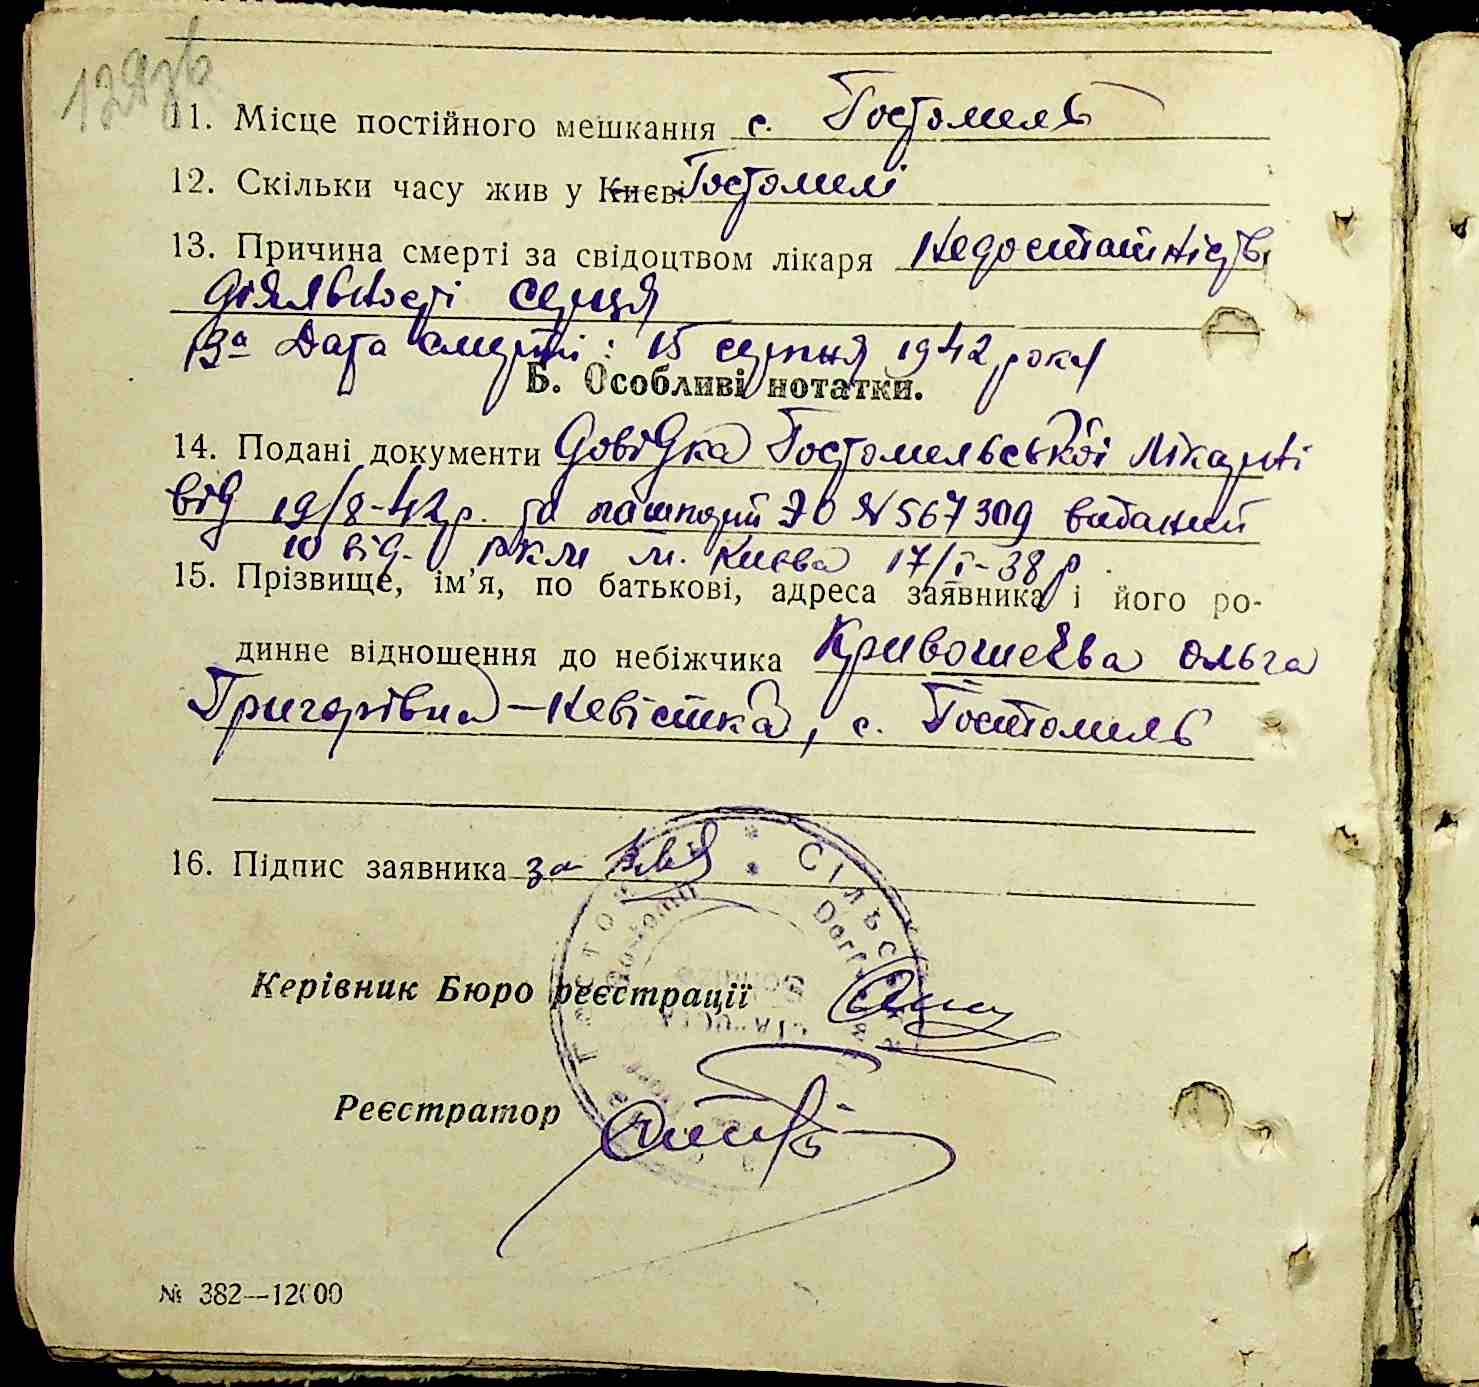 11. Місце постійного мешкання с. Гостомель
12. Скільки часу жив у Києві Гостомелі
13. Причина смерті за свідоцтвом лікаря Недостатність
діяльності серця
13а Дата смерті: 15 серпня 1942 року
Б. Особливі нотатки.
14. Подані документи Довідка Гостомельської лікарні
від 19/8-42 р. та пашпорт ЭО № 567309 виданий
10 від. РКМ м. Києва 17/I-38 р.
15. Прізвище, ім'я, по батькові, адреса заявника і його ро-
динне відношення до небіжчика Кривошеєва Ольга
Григорівна – Невістка, с. Гостомель
16. Підпис заявника за
Керівник Бюро реєстрації
Реєстратор
№ 382—12000